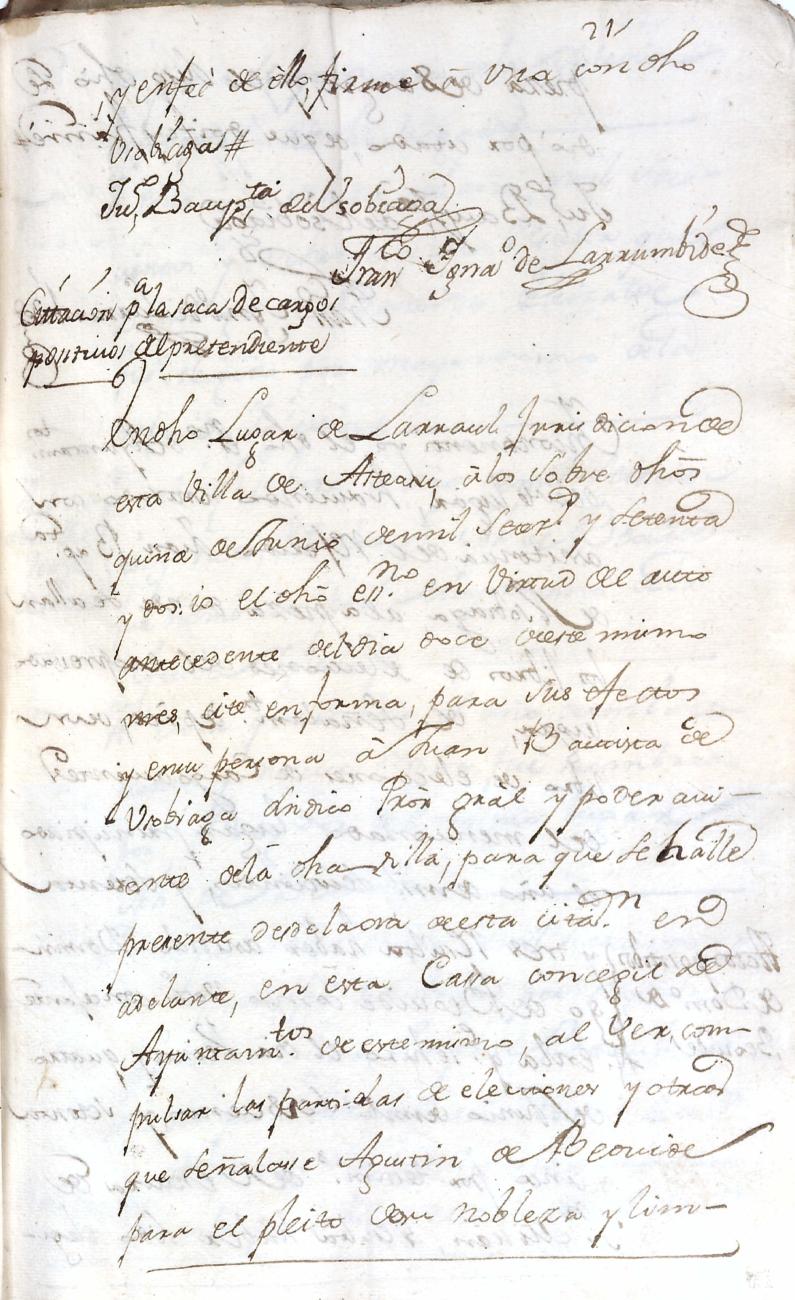 21
y enfeé de ello, firmé á una con dho
Usabiaga #
Juº Baupta de Usobiaga
Franco Ignaº de Larrumbide
Cittacion pª la saca de cargos
positivos del pretendiente
En dho Lugar de Larraul Jurisdicion de
esta Villa de Asteasu, á los sobre dhos
quince de Junio de mil Setecs y setenta
y dos: io el dho essno en Virtud del auto
antecedente del dia doce de este mismo
mes, cité en forma, para sus efectos
y en su persona á Juan Bautista de
Usobiaga Sindico Pror gral y poder avi-
ente de la dha villa, para que se halle
presente desde la ora de esta citan en
adelante, en esta Cassa concegil de
Ayuntamtos de este mismo, al Ver, com-
pulsar las partidas de elecciones y otras
que señalasse Agustin de Beovide
para el pleito de su nobleza y lim-